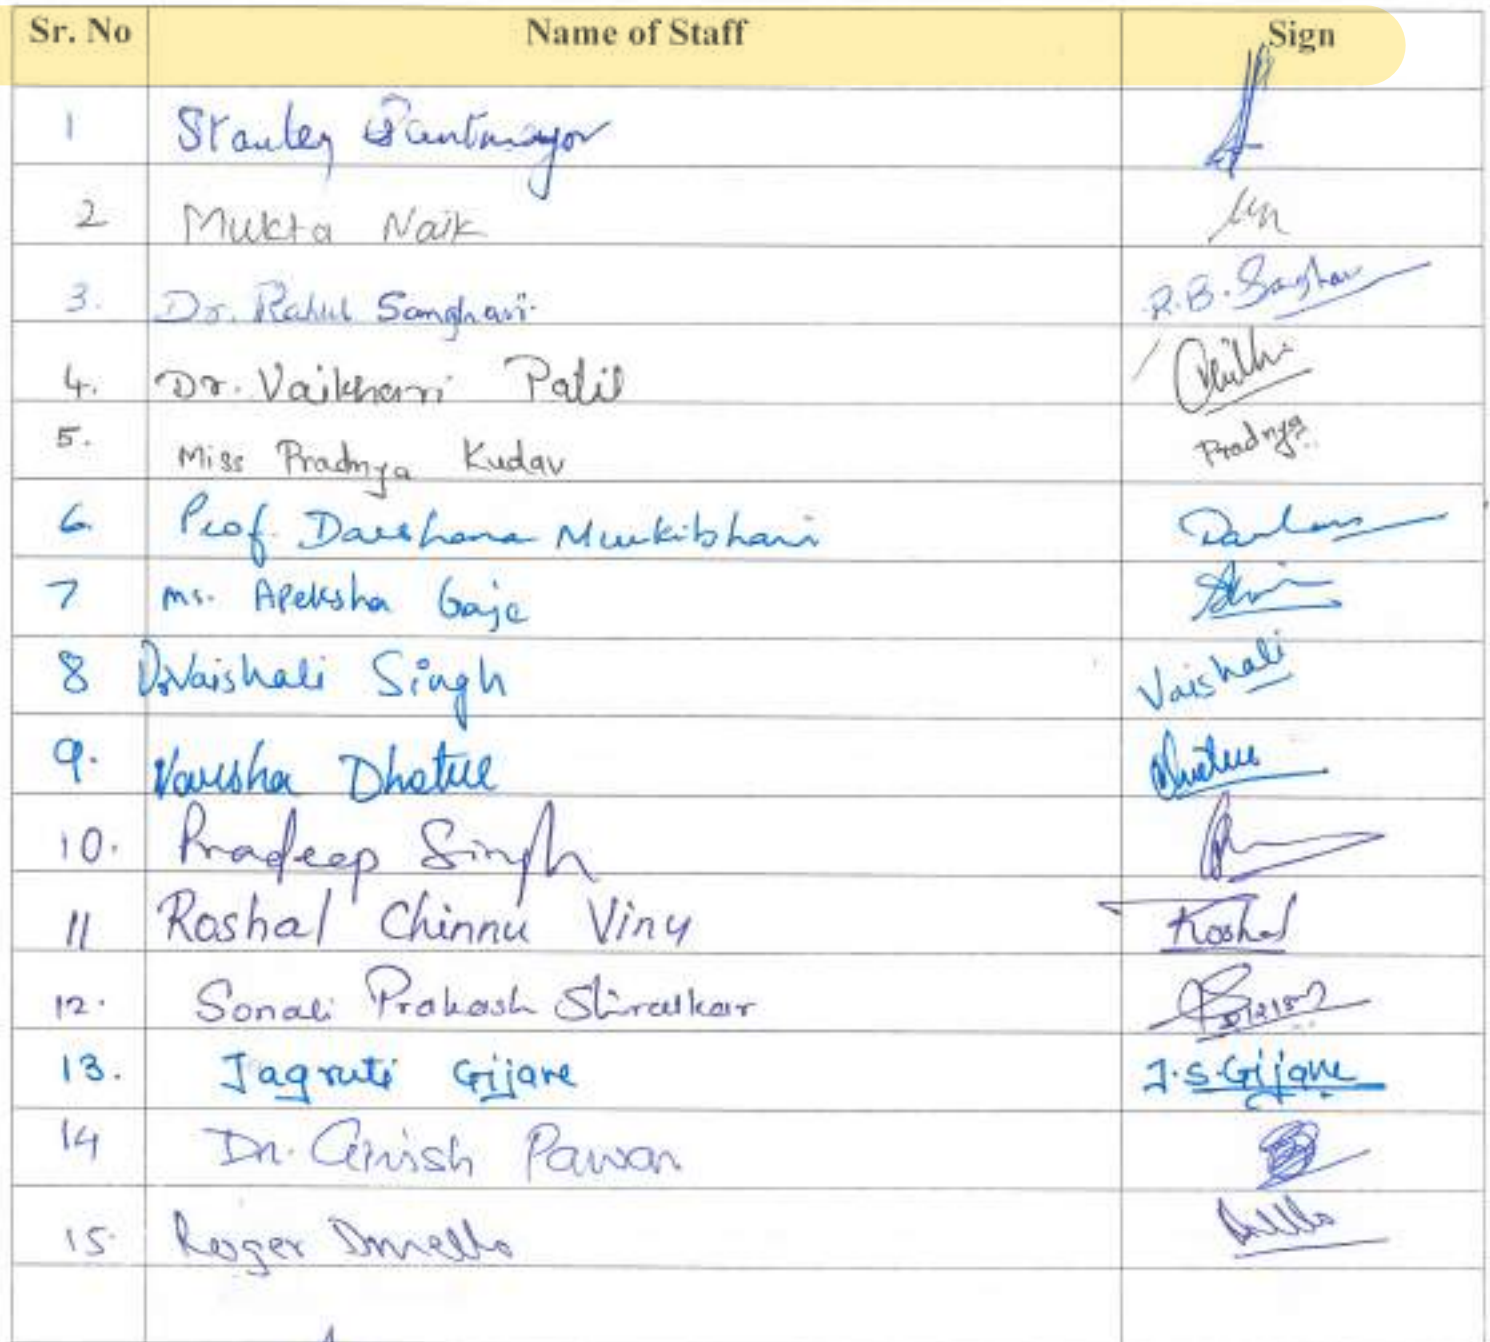 Sr. No Name of Staff Sign
1 Stanley
2 Mukta Naik
3. Dr. Rahul Sanghavi R.B. Sanghav
4. Dr. Vaikhari Patil
5. Miss Pradnya Kudav Pradnya
6 Prof. Darshana Murkibhavi
7 Ms. Apeksha Gaje
8 Dr Vaishali Singh Vaishali
9. Varsha Dhatul
10. Pradeep Singh
11 Roshal Chinnu Vinu Roshal
12. Sonali Prakash Shiralkar
13. Jagruti Gijare J.S.Gijare
14 Dr. Girish Pawar
15. Roger Dmello